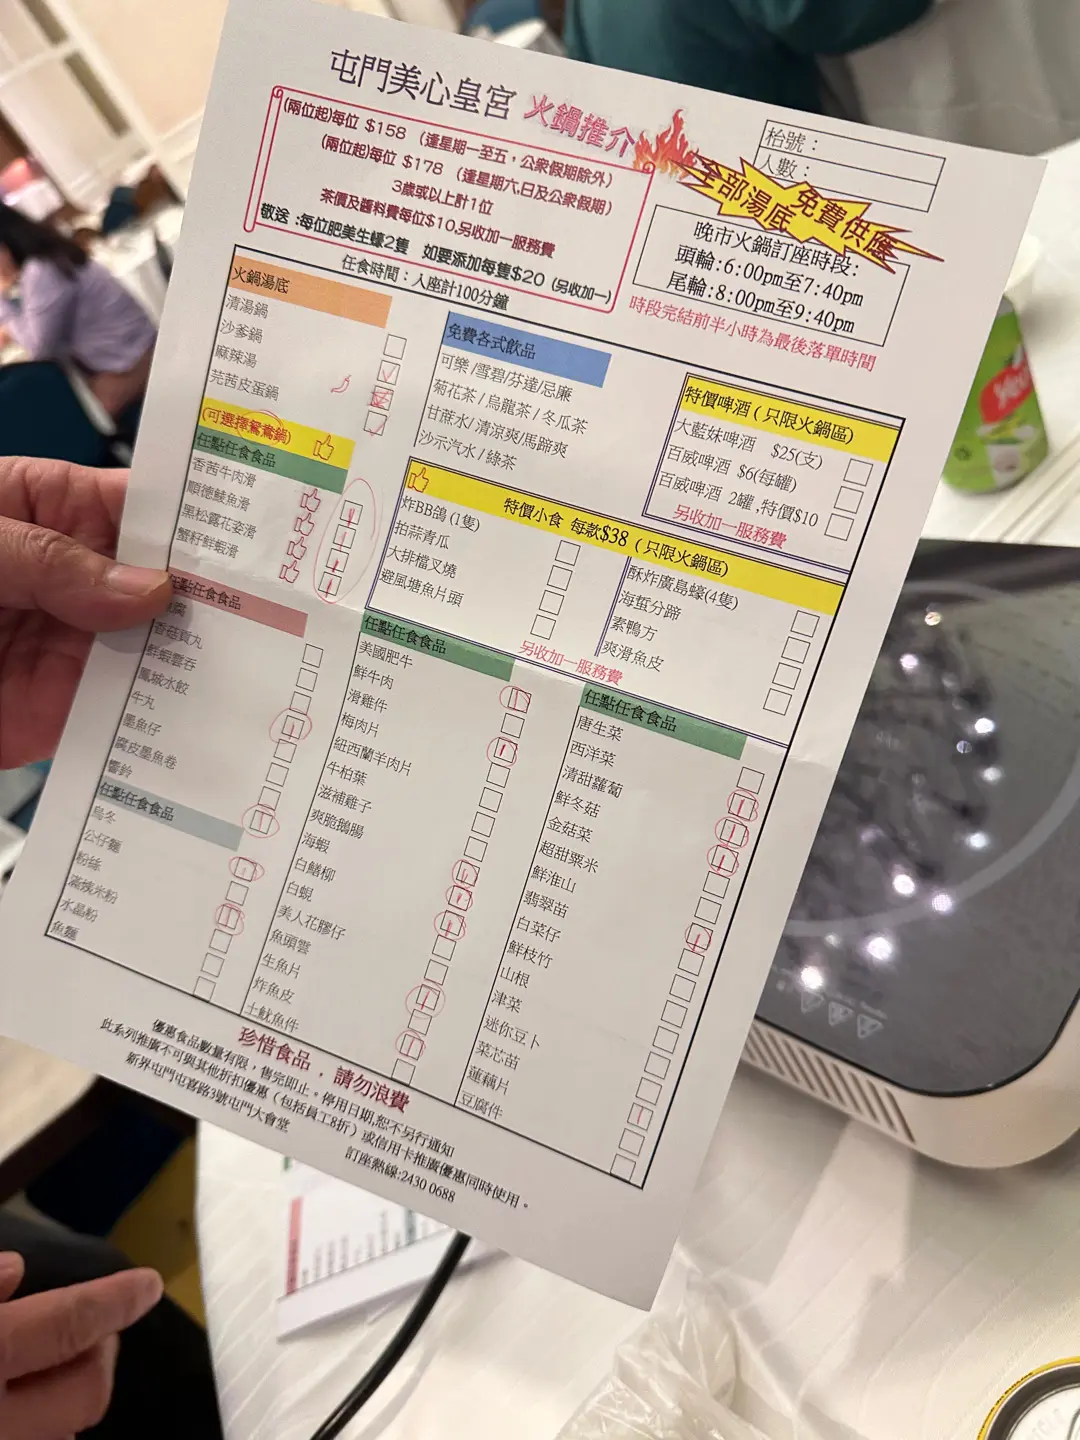 屯門美心皇宮 火鍋推介
(兩位起)每位 $158 (逢星期一至五，公眾假期除外)
(兩位起)每位 $178 (逢星期六,日及公眾假期)
3歲或以上計1位
茶價及醬料費每位$10,另收加一服務費
敬送 :每位肥美生蠔2隻 如要添加每隻$20 (另收加一)
任食時間：入座計100分鐘
枱號：
人數：
全部湯底
免費供應
晚市火鍋訂座時段:
頭輪:6:00pm至7:40pm
尾輪:8:00pm至9:40pm
時段完結前半小時為最後落單時間
火鍋湯底
清湯鍋
沙爹鍋
麻辣湯
芫茜皮蛋鍋
(可選擇鴛鴦鍋)
任點任食食品
香茜牛肉滑
順德鯪魚滑
黑松露花姿滑
蟹籽鮮蝦滑
免費各式飲品
可樂 /雪碧/芬達/忌廉
菊花茶 / 烏龍茶 / 冬瓜茶
甘蔗水/ 清涼爽/馬蹄爽
沙示汽水 / 綠茶
特價啤酒 ( 只限火鍋區)
大藍妹啤酒 $25(支)
百威啤酒 $6(每罐)
百威啤酒 2罐 ,特價$10
另收加一服務費
特價小食 每款$38 ( 只限火鍋區)
炸BB鴿 (1隻)
拍蒜青瓜
大排檔叉燒
避風塘魚片頭
酥炸廣島蠔(4隻)
海蜇分蹄
素鴨方
爽滑魚皮
另收加一服務費
任點任食食品
香菇貢丸
鮮蝦雲吞
鳳城水餃
牛丸
墨魚仔
腐皮墨魚卷
響鈴
任點任食食品
烏冬
公仔麵
粉絲
滿嬌米粉
水晶粉
魚麵
任點任食食品
美國肥牛
鮮牛肉
滑雞件
梅肉片
紐西蘭羊肉片
牛柏葉
滋補雞子
爽脆鵝腸
海蝦
白鱔柳
白蜆
美人花膠仔
魚頭雲
生魚片
炸魚皮
土魷魚件
任點任食食品
唐生菜
西洋菜
清甜蘿蔔
鮮冬菇
金菇菜
超甜粟米
鮮淮山
翡翠苗
白菜仔
鮮枝竹
山根
津菜
迷你豆卜
菜芯苗
蓮藕片
豆腐件
珍惜食品，請勿浪費
優惠食品數量有限，售完即止。停用日期,恕不另行通知
此系列推廣不可與其他折扣優惠（包括員工8折）或信用卡推廣優惠同時使用。
新界屯門屯喜路3號屯門大會堂
訂座熱線:2430 0688